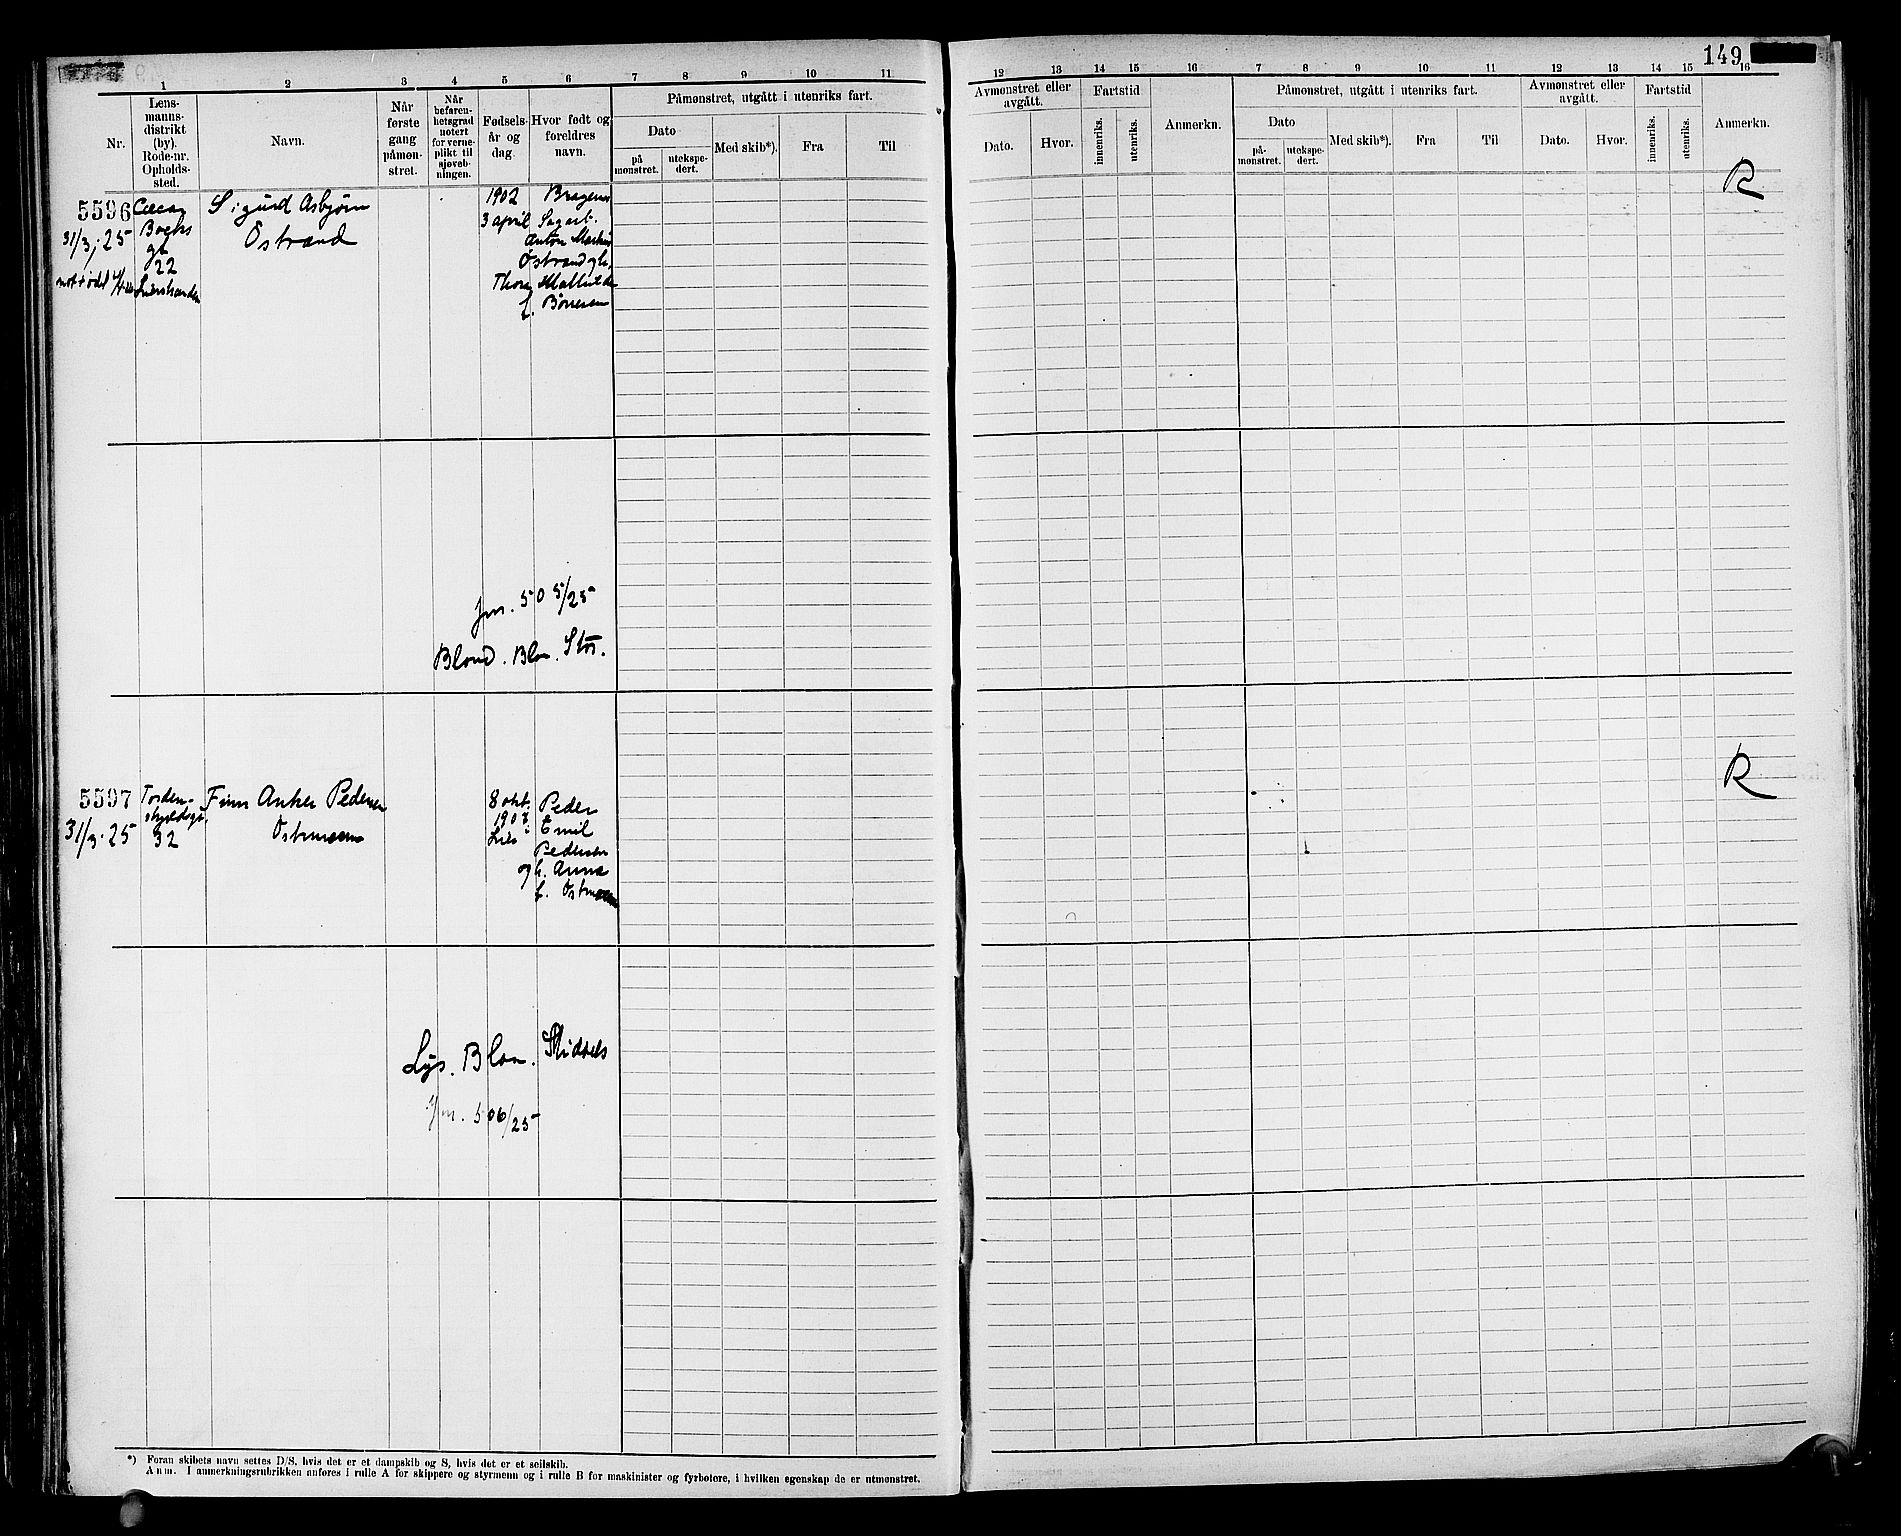 149
1 2 3 4 5 6 7 8 9 10 11
Nr.
Lens-
manns-
distrikt
(by).
Rode-nr.
Opholds-
sted.
Navn.
Når
første
gang
påmøn-
stret.
Når
befaren-
hetsgrad
notert
for verne-
plikt til
sjøveb-
ningen.
Fødsels-
år og
dag.
Hvor født og
foreldres
navn.
Påmønstret, utgått i utenriks fart.
Dato
på
mønstret.
utekspe-
dert.
Med skib*).
Fra
Til
12 13 14 15 16 7 8 9 10 11 12 13 14 15 16
Avmønstret eller
avgått.
Dato.
Hvor.
Fartstid
innenriks.
utenriks.
Anmerkn.
Påmønstret, utgått i utenriks fart.
Dato
på-
mønstret.
utekspe-
dert.
Med skib*).
Fra
Til
Avmønstret eller
avgått.
Dato.
Hvor.
Fartstid
innenriks.
utenriks.
Anmerkn.
5596
31/3.25
22
Lierstranden
Sigurd Asbjørn
Østrand
1902
3 april
Bragernes
Anton Markus
Østrand og h.
Thora Mathilde
f. Børresen
R
Jrn. 505/25
Blond. Blaa. Stor.
5597
31/3.25
Torden-
skjoldsgt.
32
Finn Anker Pedersen
Østmoen
8 okt.
1907
Lier
Peder
Emil
Pedersen
og h. Anna
f. Østmoen
R
Lys. Blaa. Middels
Jrn. 506/25
*) Foran skibets navn settes D/S, hvis det er et dampskib og S, hvis det er et seilskib.
Anm. I anmerkningsrubrikken anføres i rulle A for skippere og styrmenn og i rulle B for maskinister og fyrbøtere, i hvilken egenskap de er utmønstret.